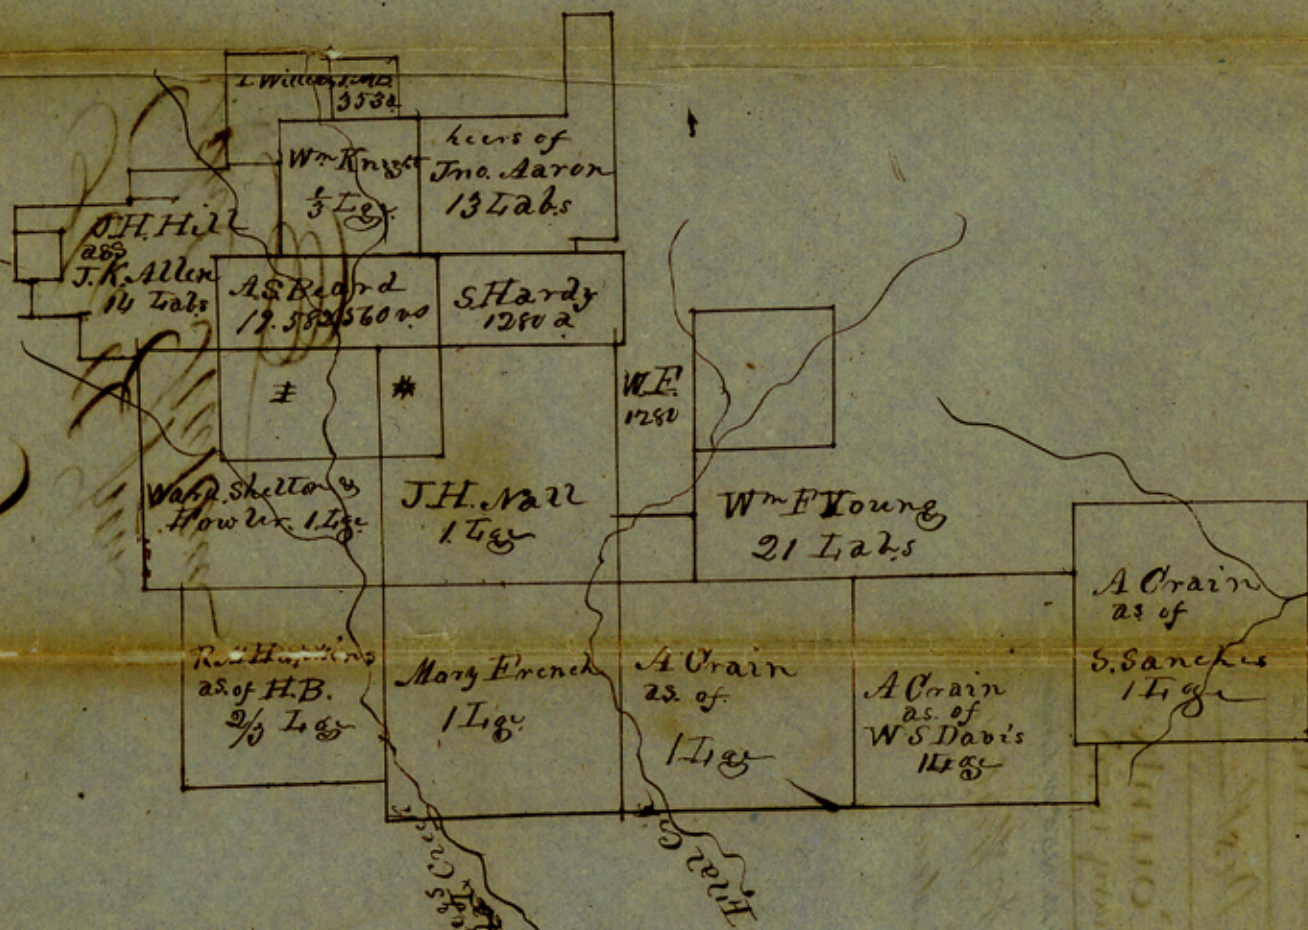 353a
Wm Knight
1/3 Lge.
heers of
Jno. Aaron
13 Labs
J.H. Hill
ass
J.K. Allen
14 Labs
A.S. Beard
19.582,560 vs
S. Hardy
1280 a
W.F.
1280
Ward, Shelton &
Fowler. 1 Lge
J.H. Nall
1 Lge
Wm F Young
21 Labs
A Crain
as of
S. Sanches
1 Lge
as. of H.B.
2/3 Lge
Mary French
1 Lge.
A Crain
as. of.
1 Lge
A Crain
as. of
W S Davis
1 Lge
Creek